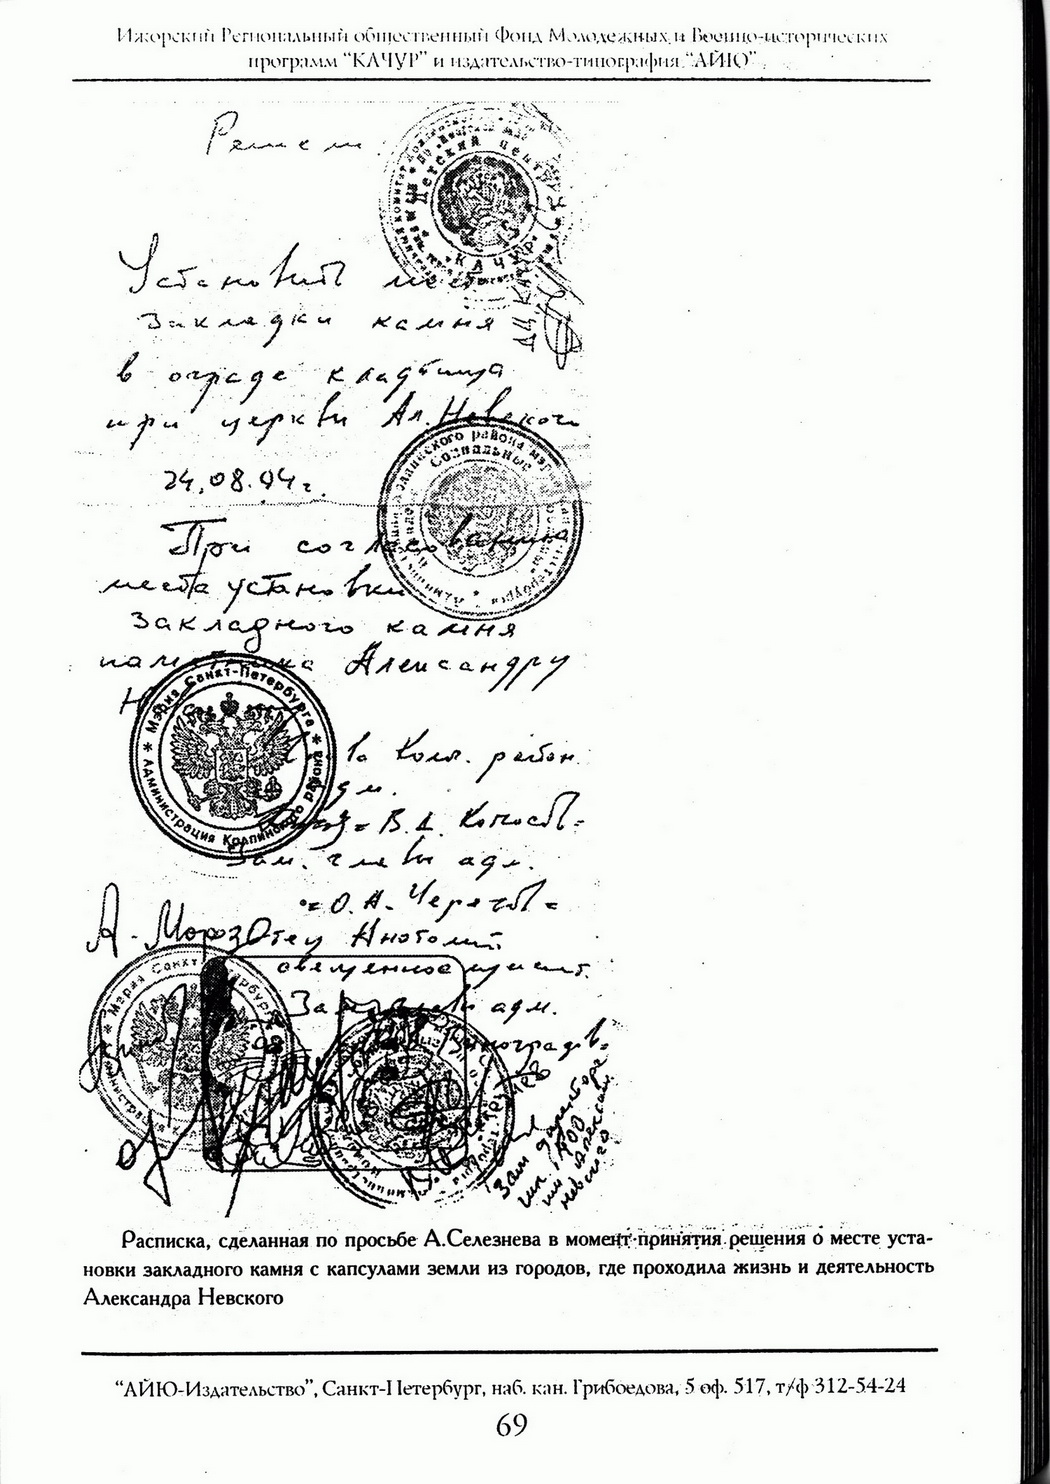 Ижорский Региональный общественный Фонд Молодежных и Военно-исторических
программ “КАЧУР” и издательство-типография “АЙЮ”
Решен
Детский центр
КАЧУР
Установить место
закладки камня
в ограде кладбища
при церкви Ал. Невского
24.08.94г.
Социальные
При согласовании
места установки
закладного камня
памятника Александру
Мэрия Санкт-Петербурга * Администрация Колпинского района *
Колп. район
адм.
В.Д.
Зам. главы адм.
= О.А.
А. Мороз Отец Анатолий
Мэрия Санкт-Петербурга
Зам главы адм.
Зам директора
шк. 400
им Александра
Невского
Расписка, сделанная по просьбе А.Селезнева в момент принятия решения о месте уста-
новки закладного камня с капсулами земли из городов, где проходила жизнь и деятельность
Александра Невского
“АЙЮ-Издательство”, Санкт-Петербург, наб. кан. Грибоедова, 5 оф. 517, т/ф 312-54-24
69